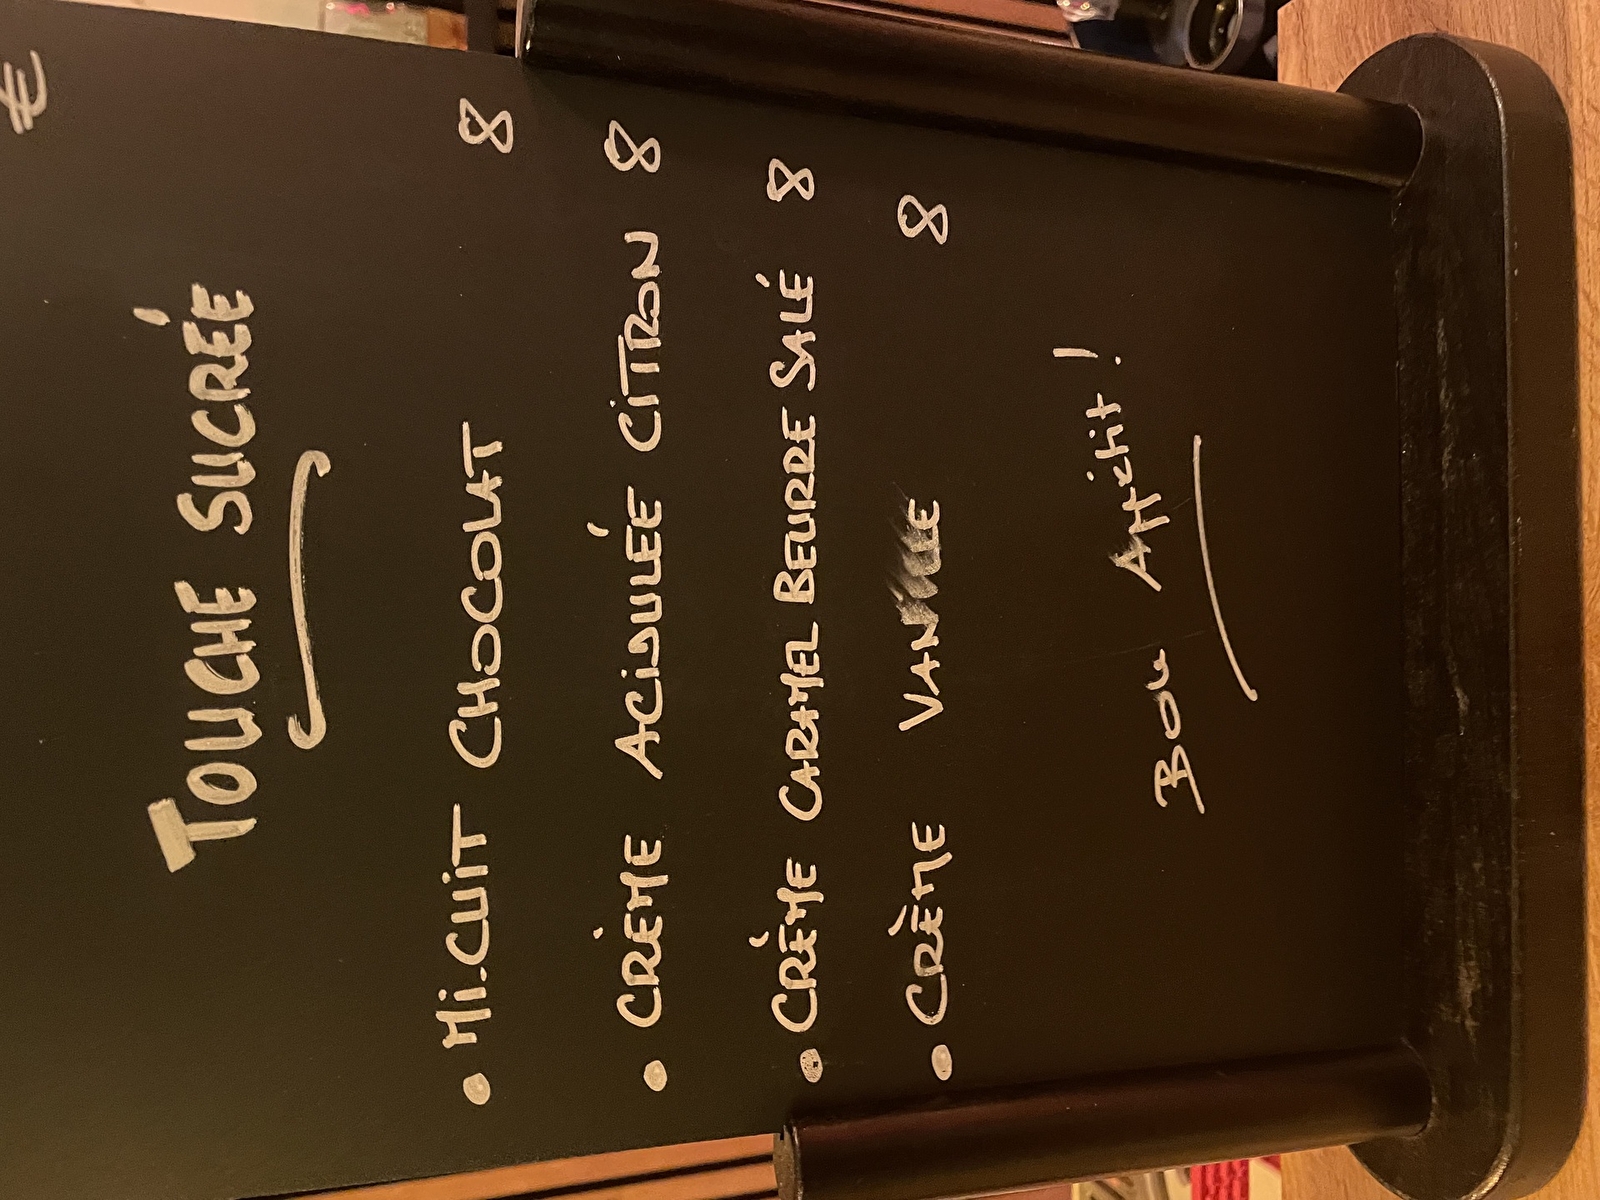 €
TOUCHE SUCRÉE
• Mi.CUiT CHOCOLAT 8
• CRÈME ACiDULÉE CiTRON 8
• CRÈME CARAMEL BEURRE SALÉ 8
• CRÈME VANILLE 8
Bon Appétit !